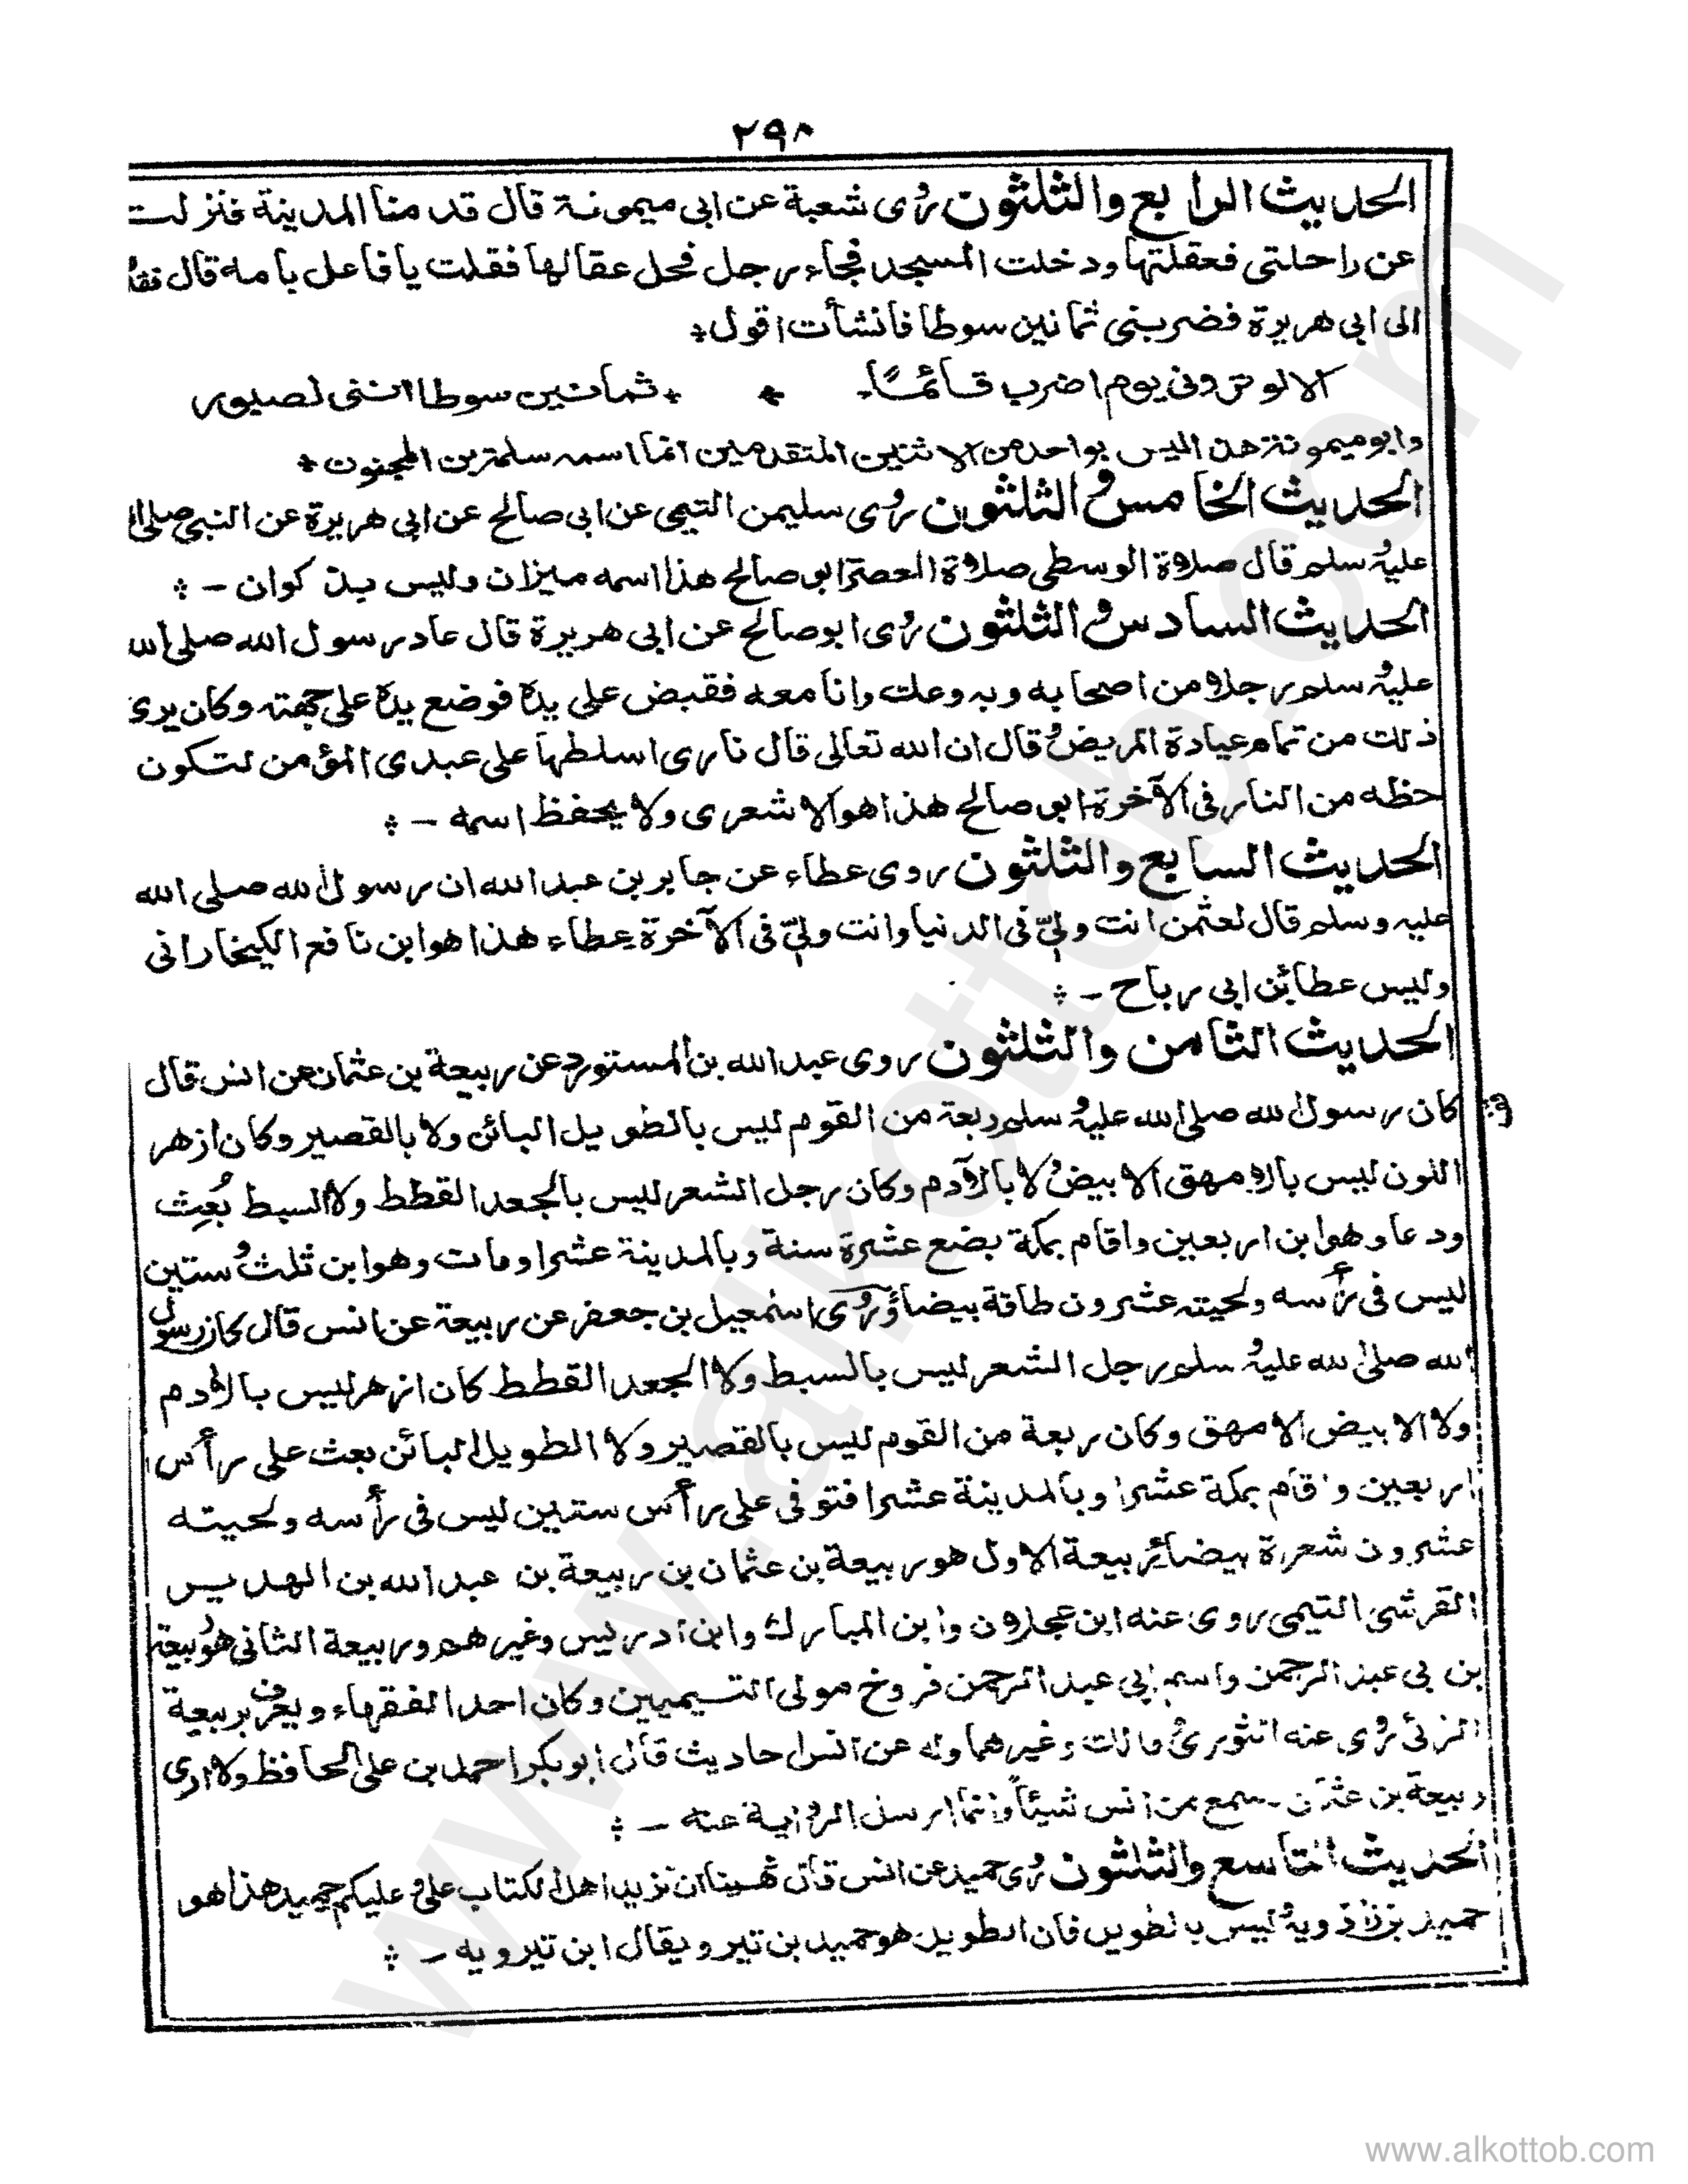 ٢٩٨
الحديث الرابع والثلثون روى شعبة عن ابى ميمونة قال قدمنا المدينة فنزلت
عن راحلتى فعقلتها ودخلت المسجد فجاء رجل فحل عقالها فقلت يا فاعل بامه قال
الى ابى هريرة فضربنى ثمانين سوطا فانشأت اقول
الا لو ترونى يوم اضرب قائمًا ثمانين سوطا اننى لصبور
وابو ميمونة هذا ليس بواحد من الاثنين المتقدمين انما اسمه سلمة بن المجنون
الحديث الخامس والثلثون روى سليمن التيمى عن ابى صالح عن ابى هريرة عن النبى صلى
عليه وسلم قال صلاة الوسطى صلاة العصر ابو صالح هذا اسمه ميزان وليس بذكوان -
الحديث السادس والثلثون روى ابو صالح عن ابى هريرة قال عاد رسول الله صلى الله
عليه وسلم رجلا من اصحابه وبه وعك وانا معه فقبض على يده فوضع يده على جبهته وكان يرى
ذلك من تمام عيادة المريض وقال ان الله تعالى قال نارى اسلطها على عبدى المؤمن لتكون
حظه من النار فى الآخرة ابو صالح هذا هو الاشعرى ولا يحفظ اسمه -
الحديث السابع والثلثون روى عطاء عن جابر بن عبد الله ان رسول الله صلى الله
عليه وسلم قال لعثمن انت وليّ فى الدنيا وانت وليّ فى الآخرة عطاء هذا هو ابن نافع الكيخارانى
وليس عطا بن ابى رباح -
الحديث الثامن والثلثون روى عبد الله بن المستورد عن ربيعة بن عثمان عن انس قال
كان رسول الله صلى الله عليه وسلم ربعة من القوم ليس بالطويل البائن ولا بالقصير وكان ازهر
اللون ليس بالامهق الابيض ولا بالآدم وكان رجل الشعر ليس بالجعد القطط ولا السبط بُعِث
ودعا وهو ابن اربعين واقام بمكة بضع عشرة سنة وبالمدينة عشرا ومات وهو ابن ثلث وستين
ليس فى رأسه ولحيته عشرون طاقة بيضاء وروى اسمعيل بن جعفر عن ربيعة عن انس قال كان رسول
الله صلى الله عليه وسلم رجل الشعر ليس بالسبط ولا الجعد القطط كان ازهر ليس بالآدم
ولا الابيض الامهق وكان ربعة من القوم ليس بالقصير ولا الطويل البائن بعث على رأس
اربعين واقام بمكة عشرا وبالمدينة عشرا فتوفى على رأس ستين ليس فى رأسه ولحيته
عشرون شعرة بيضاء ربيعة الاول هو ربيعة بن عثمان بن ربيعة بن عبد الله بن الهدير
القرشى التيمى روى عنه ابن عجلان وابن المبارك وابن ادريس وغيرهم وربيعة الثانى هو ربيعة
بن ابى عبد الرحمن واسم ابى عبد الرحمن فروخ مولى التيميين وكان احد الفقهاء ويعرف بربيعة
الرئى روى عنه الثورى ومالك وغيرهما وله عن انس احاديث قال ابو بكر احمد بن على الحافظ ولا ارى
ربيعة بن عثمان سمع من انس شيئاً وانما ارسل الرواية عنه -
الحديث التاسع والثلثون روى حميد عن انس قال نهينا ان نزيد اهل الكتاب على وعليكم حميد هذا هو
حميد بن زاذويه وليس بالطويل فان الطويل هو حميد بن تير ويقال ابن تيرويه -
www.alkottob.com
www.alkottob.com